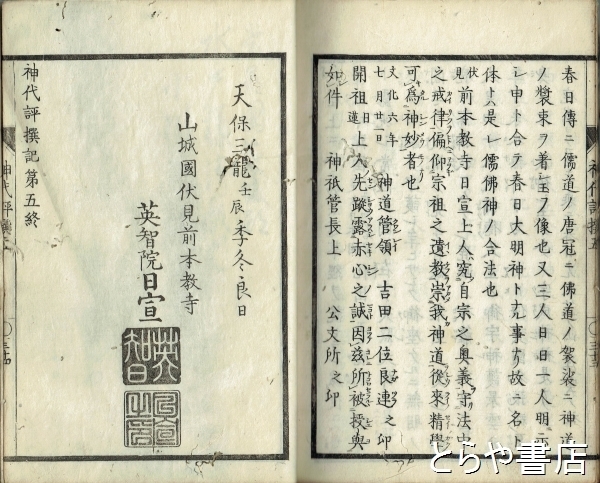 春日傳ニ儒道ノ唐冠ニ佛道ノ袈裟ニ神道
ノ裳束ヲ着玉フ像也又三人日日一人明
シ申ト合テ春日大明神ト充事ナリ故ニ名ト
体トハ是レ儒佛神ノ合法也
伏見前本教寺日宣上人究自宗之奥義守法中
之戒律偏仰宗祖之遺教崇我神道從來精學
可為神妙者也
文化六年七月廿一日 神道管領 吉田二位良連之印
開祖日蓮上人先蹤露赤心之誠因茲所被授與
如件 神祇管長上 公文所之印
神代評撰五
天保三龍壬辰季冬良日
山城國伏見前本教寺
英智院日宣
神代評撰記第五終
とらや書店